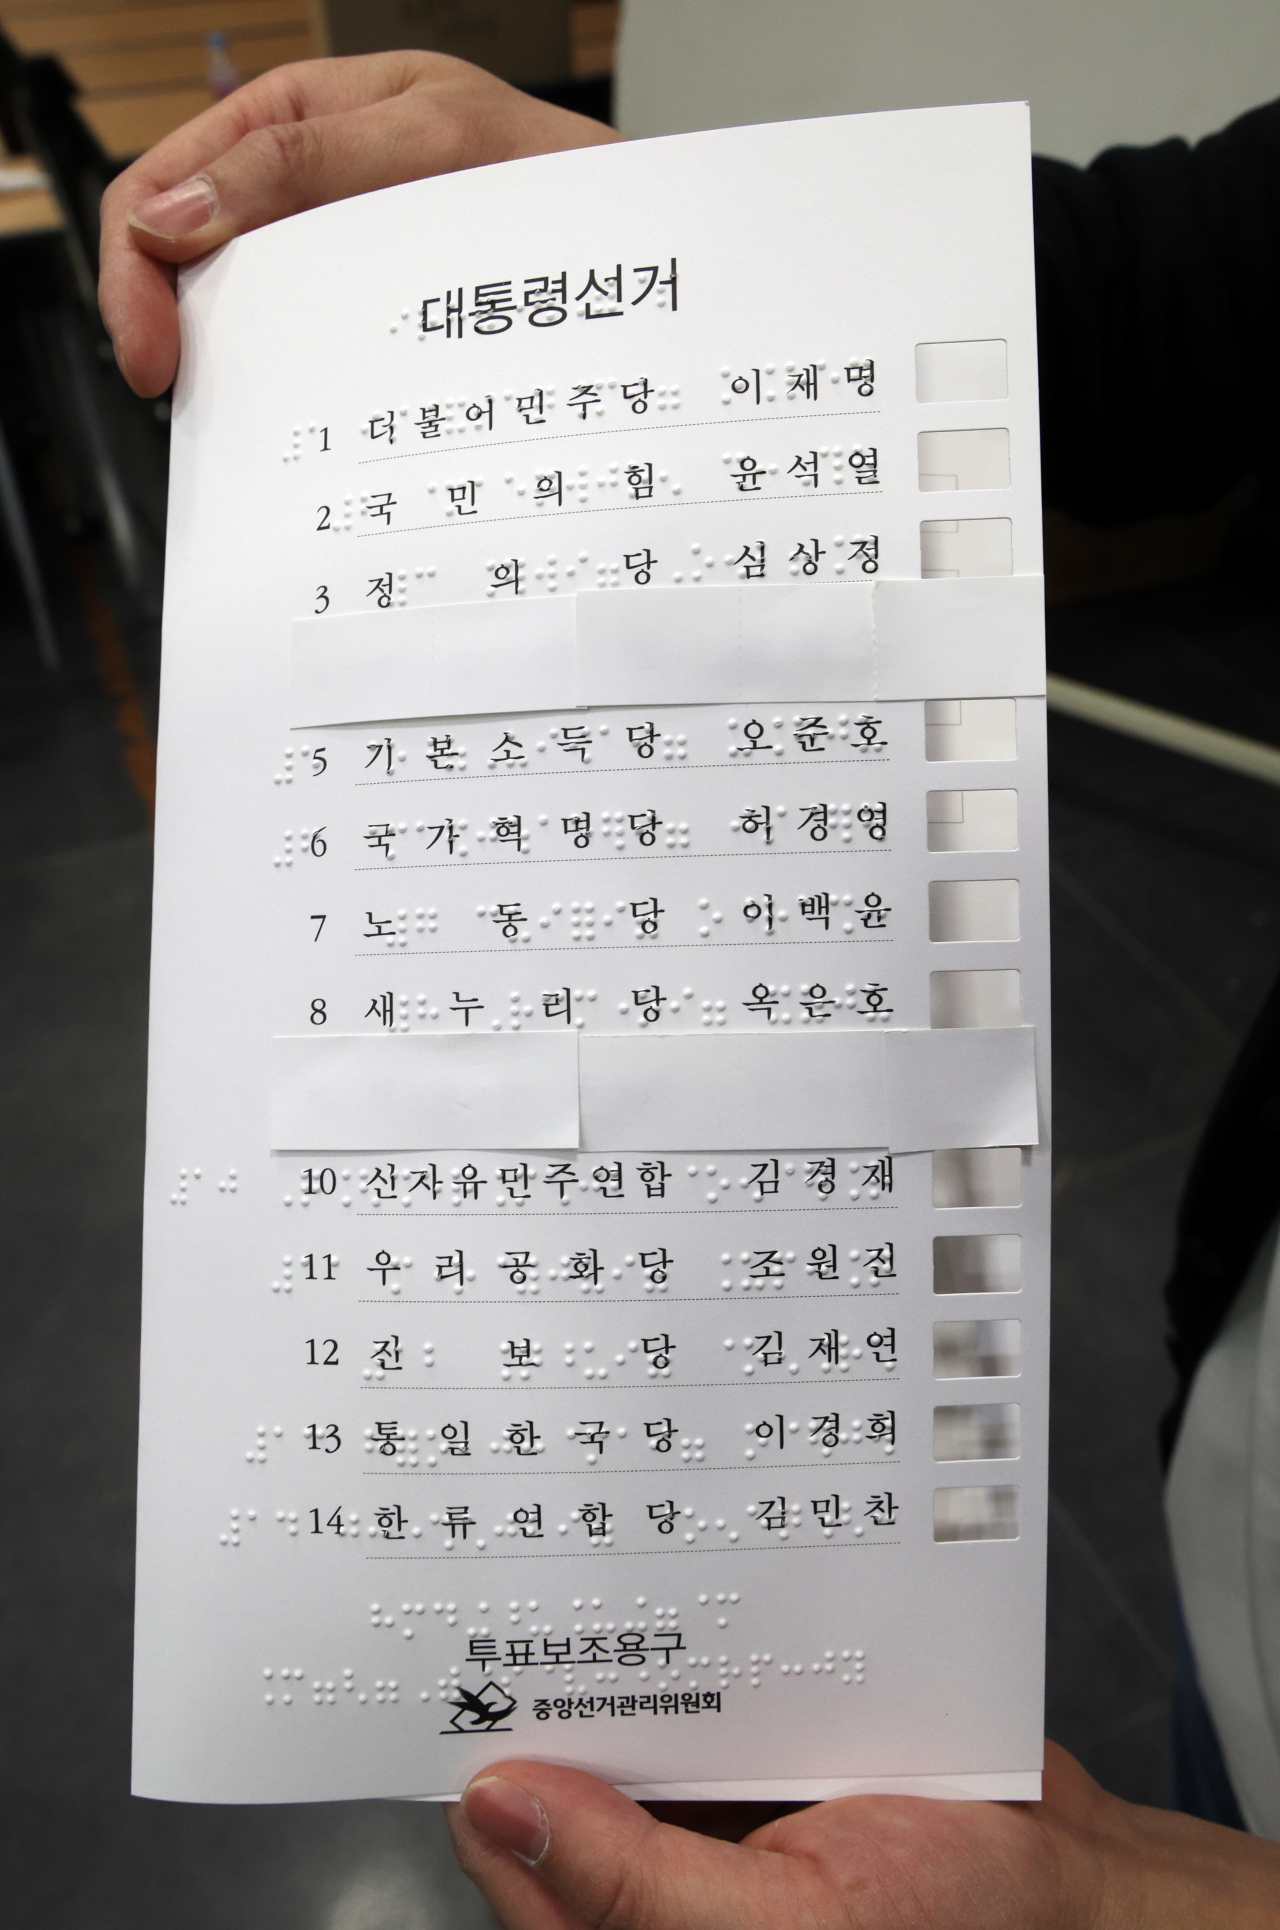 대통령선거
1 더불어민주당 이재명
2 국민의힘 윤석열
3 정의당 심상정
5 기본소득당 오준호
6 국가혁명당 허경영
7 노동당 이백윤
8 새누리당 옥은호
10 신자유민주연합 김경재
11 우리공화당 조원진
12 진보당 김재연
13 통일한국당 이경희
14 한류연합당 김민찬
투표보조용구
중앙선거관리위원회